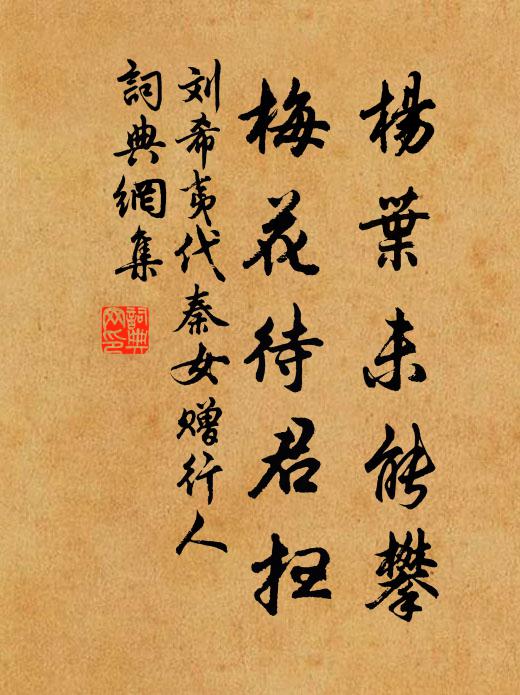 楊葉未能攀
梅花待君
刘希夷代秦女赠行人
詞典網集
詞典網印